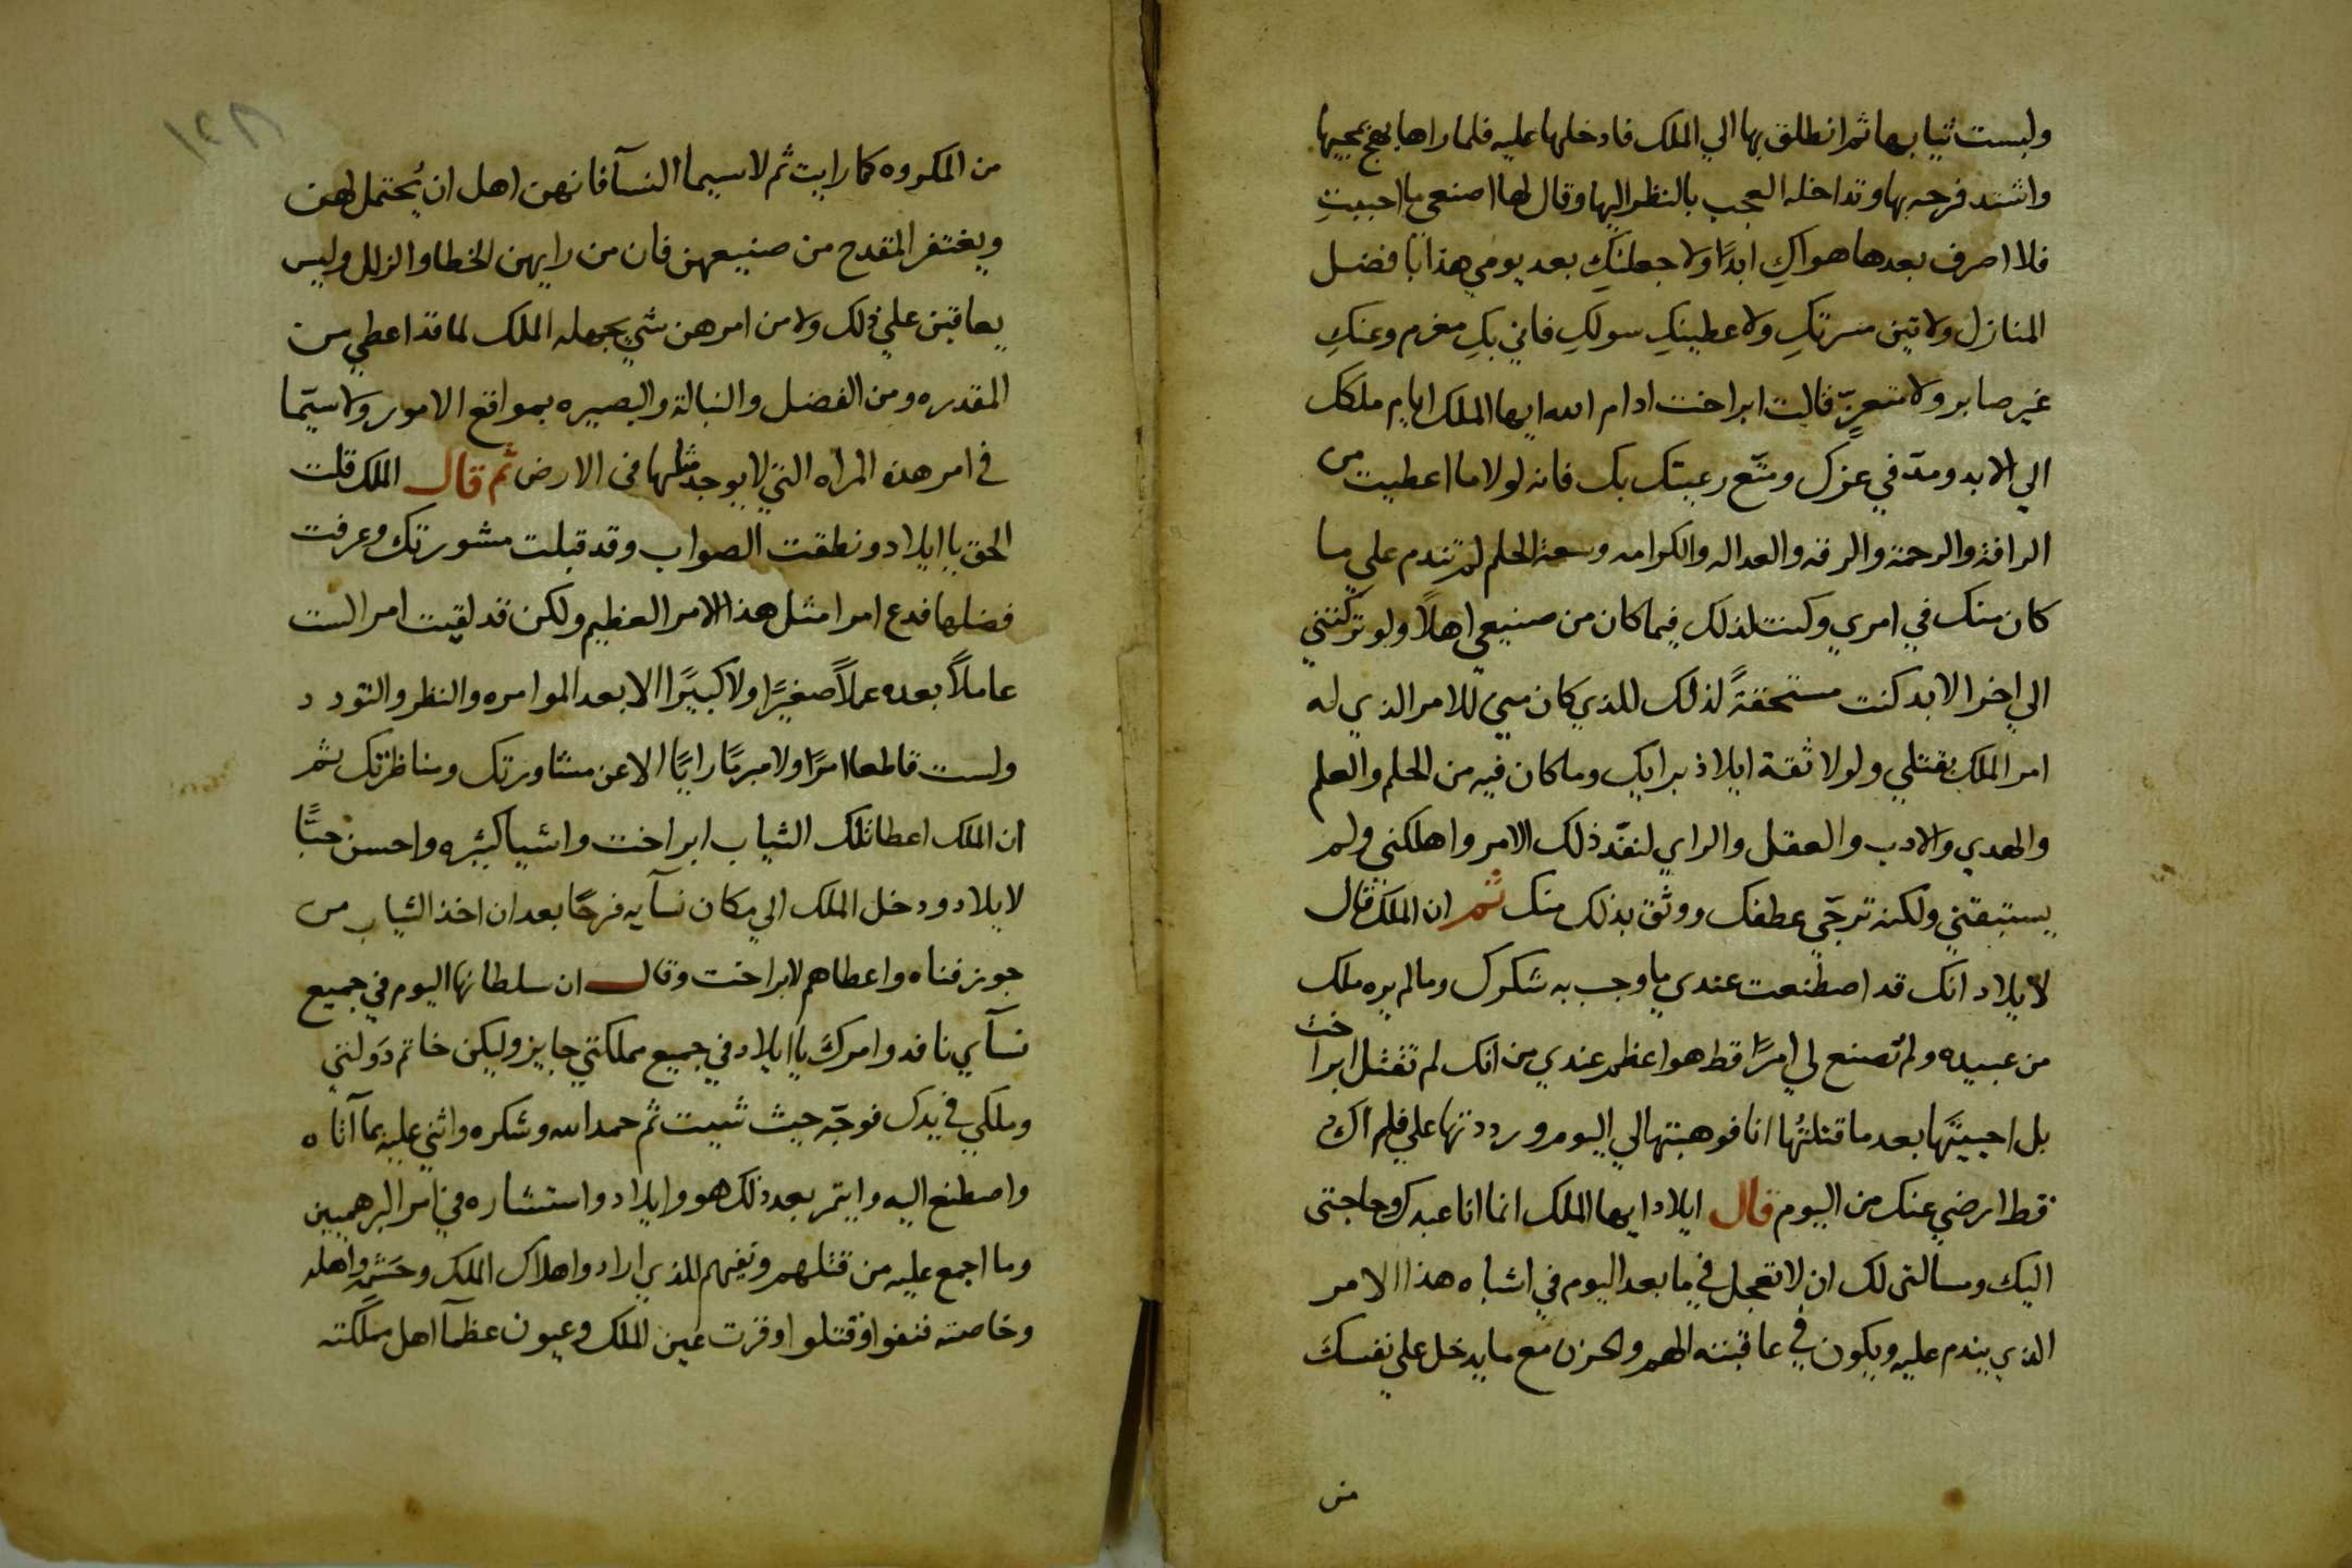 ولبست ثيابها ثم انطلق بها الي الملك فادخلها عليه فلما راها بهج بمجيها
واشتد فرحه بها وتداخله العجب بالنظر اليها وقال لها اصنعي ما احببتِ
فلا اصرف بعدها هواكِ ابدًا ولاجعلنكِ بعد يومي هذا بافضل
المنازل ولاتين مسرتكِ ولاعطينكِ سولكِ فاني بكِ مغرم وعنكِ
غير صابر ولا متعزٍّ قالت ابراخت ادام الله ايها الملك ايام ملكك
الي الابد ومدّ في عزك ومتّع رعيتك بك فانه لولا ما اعطيت من
الرافة والرحمة والرقه والعداله والكرامه وسعة الحلم لم تندم علي ما
كان منك في امري وكنت لذلك فيما كان من صنيعي اهلاً ولو تركتني
الي اخر الابد كنت مستحقةً لذلك للذي كان مني للامر الذي له
امر الملك بقتلي ولولا ثقة ايلاذ برايك وما كان فيه من الحلم والعلم
والهدي والادب والعقل والراي لنفّذ ذلك الامر واهلكني ولم
يستبقني ولكنه ترجّي عطفك ووثق بذلك منك ثم ان الملك قال
لايلاد انك قد اصطنعت عندي ما وجب به شكرك وما لم يره ملك
من عبيده ولم تصنع لي امرًا قط هو اعظم عندي من انك لم تقتل ابراخت
بل احييتَها بعد ما قتلتُها انا فوهبتها الي اليوم ورددتها علي فلم اك
قط ارضي عنك من اليوم قال ايلاد ايها الملك انما انا عبدك وحاجتي
اليك ومسالتي لك ان لا تعجل في ما بعد اليوم في اشباه هذا الامر
الذي يندم عليه ويكون في عاقبته الهم والحزن مع ما يدخل علي نفسك
من
١٢٨
من المكروه كما رايت ثم لاسيما النسآ فانهن اهل ان يُحتمل لهن
ويغتفر المقدح من صنيعهن فان من رايهن الخطا والزلل وليس
يعاقبن علي ذلك ولا من امرهن شي يجهله الملك لما قد اعطي من
المقدره ومن الفضل والنبالة والبصيره بمواقع الامور ولا سيّما
في امر هذه المراه التي لا يوجد مثلها في الارض ثم قال الملك قلت
الحق يا ايلاد ونطقت الصواب وقد قبلت مشورتك وعرفت
فضلها فدع امرا مثل هذا الامر العظيم ولكن قد لقيت امرا لست
عاملاً بعده عملاً صغيرًا ولا كبيرًا الا بعد الموامره والنظر والتودد
ولست قاطعا امرًا ولا مبرمًا رايًا الا عن مشاورتك ومناظرتك ثم
ان الملك اعطا تلك الثياب ابراخت واشيا كثيره واحسن حبًّا
لايلاد ودخل الملك الي مكان نسآيه فرحًا بعد ان اخذ الثياب من
جورفناه واعطاهم لابراخت وقال ان سلطانها اليوم في جميع
نسآي نافد وامرك يا ايلاد في جميع مملكتي جايز وليكن خاتم دَولتي
وملكي في يدك فوجّه حيث شيت ثم حمد الله وشكره واثني عليه بما آتاه
واصطنع اليه وايتمر بعد ذلك هو وايلاد واستشاره في امر البرهميين
وما اجمع عليه من قتلهم ونفيهم للذي ارادوا هلاك الملك وحَشَمه واهله
وخاصته فنفوا وقتلوا وقرت عين الملك وعيون عظمآ اهل مملكته